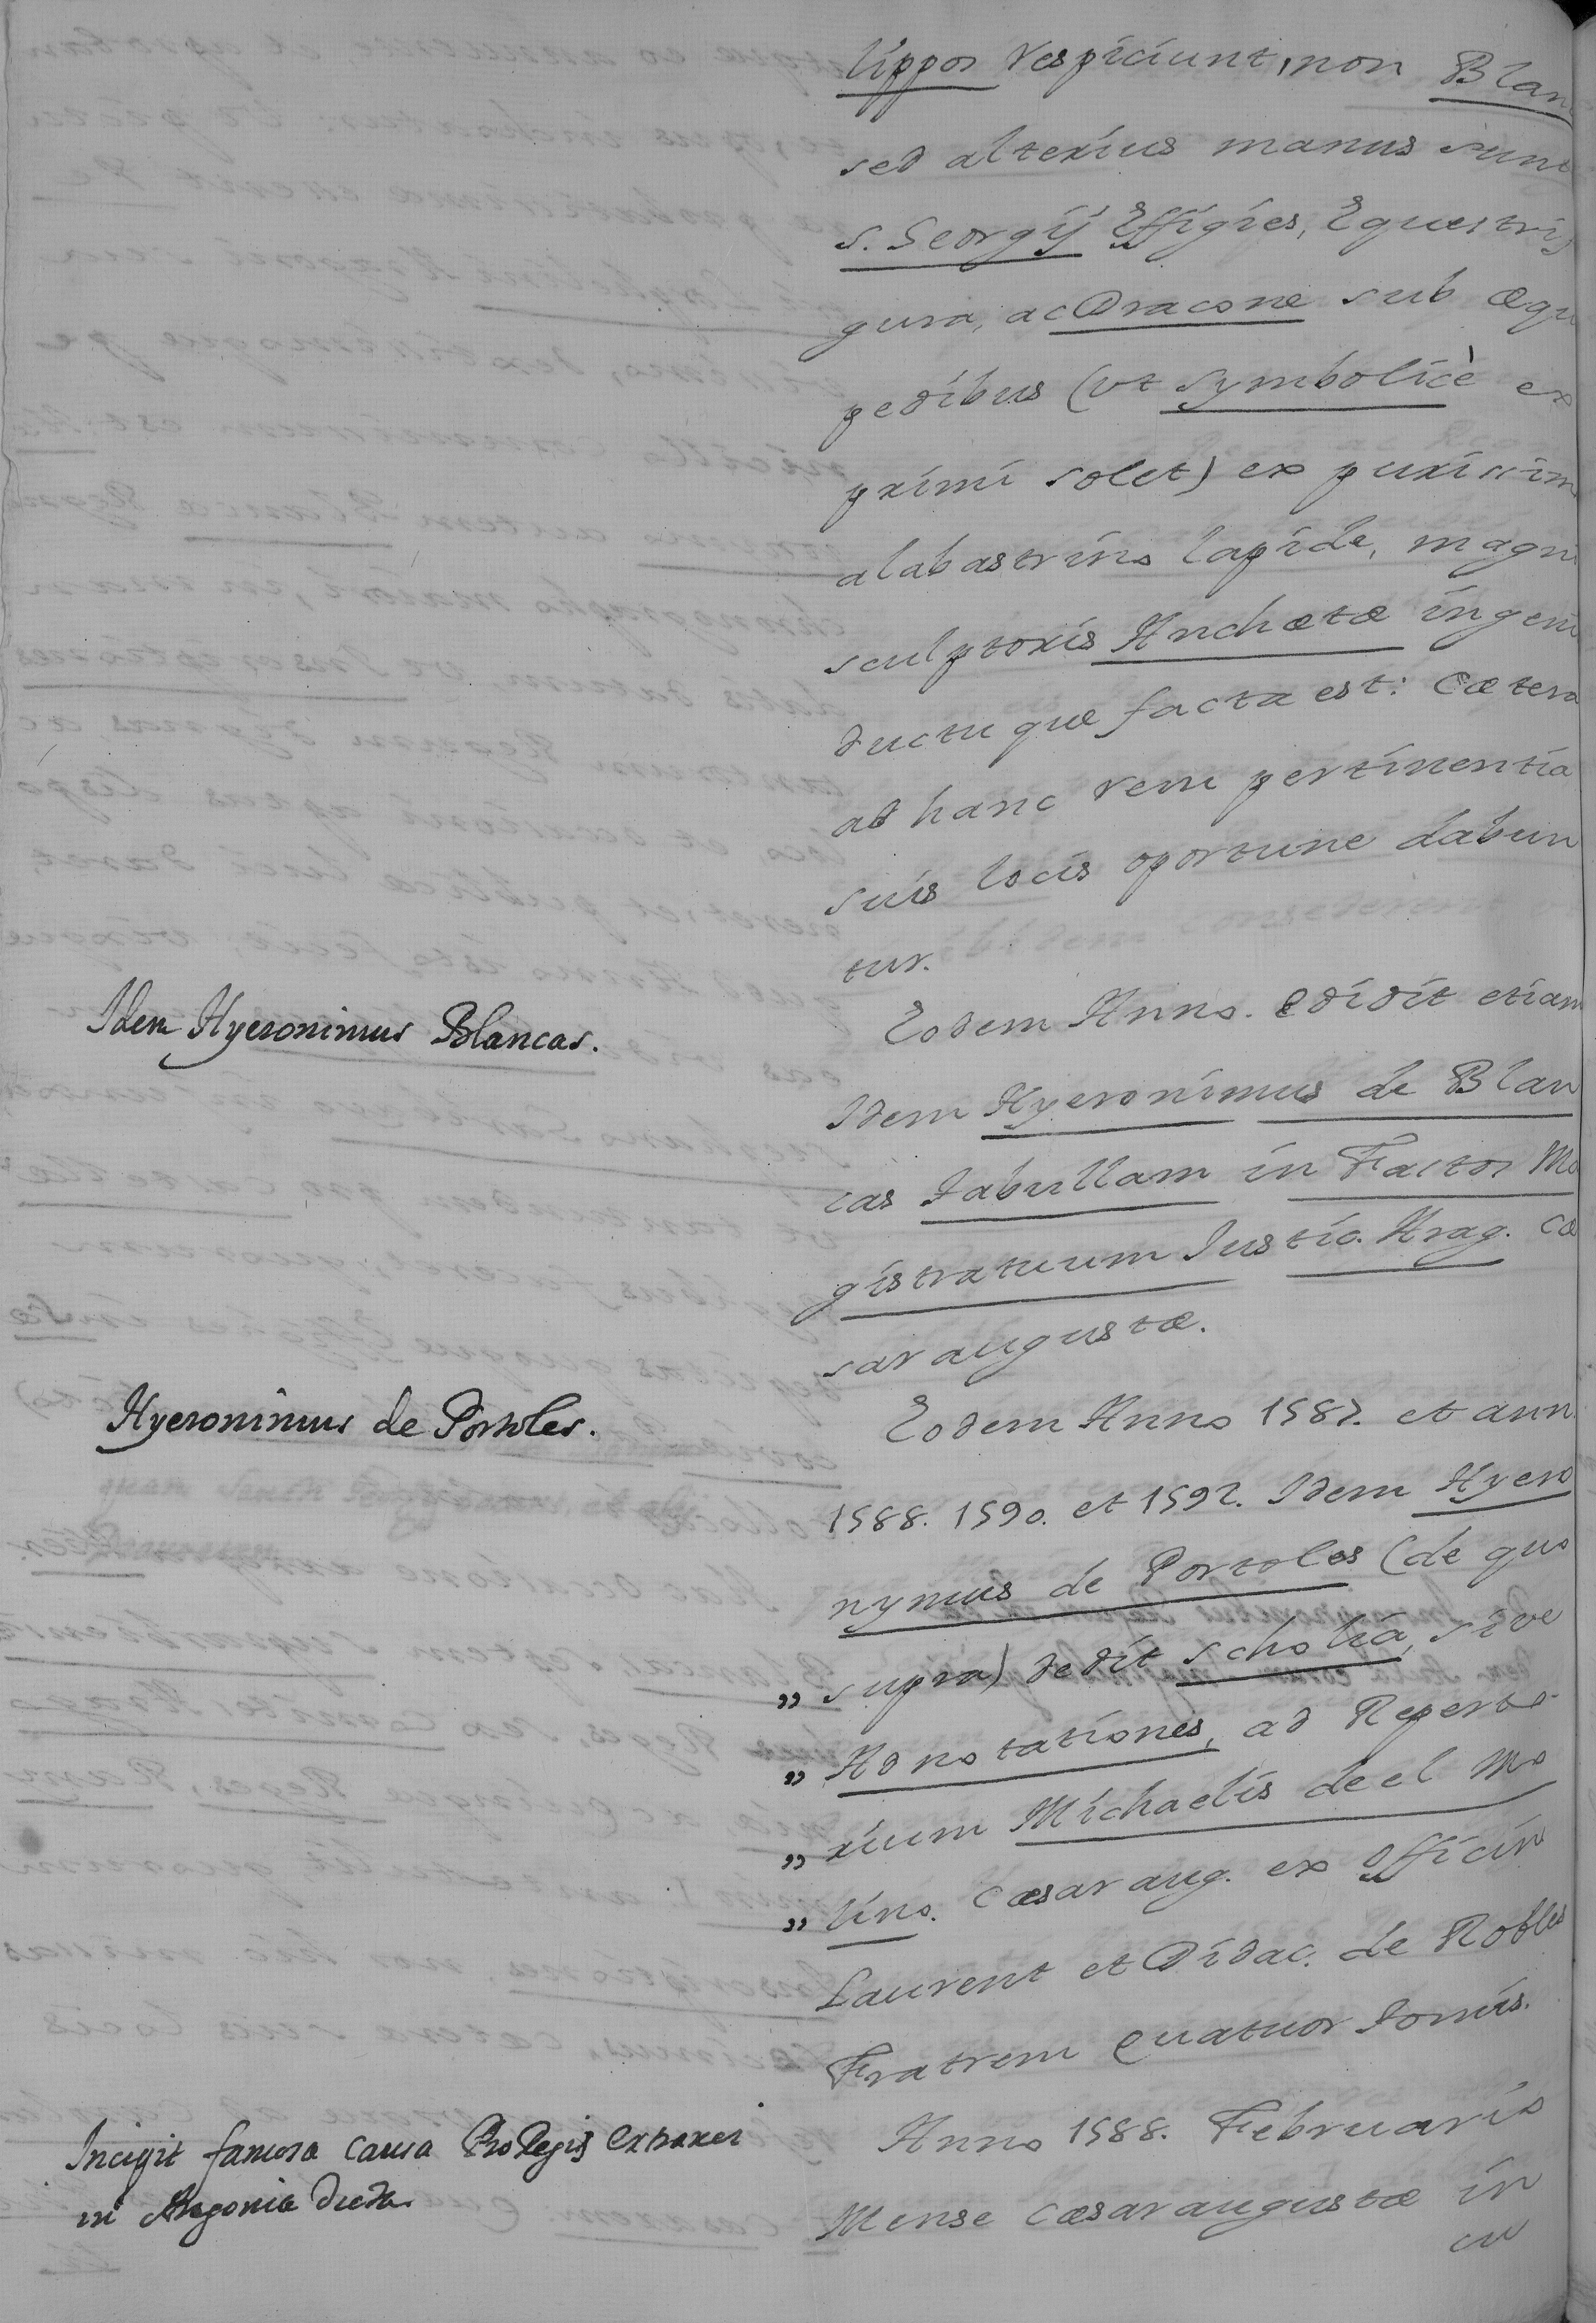 lippos respiciunt, non Blan
sed alterius manus sunt
S. Georgij Effigies, Equestri
gura, ac Dracone sub æqu
pedibus (vt symbolicè ex
primi solet) ex purissim
alabastrino lapide, magn
sculptoris Anchætæ ingeni
ductuque facta est: cætera
ad hanc rem pertinentia
suis locis oportune dabun
tur.
Idem Hyeronimus Blancas.
Eodem Anno. Edidit etiam
Idem Hyeronimus de Blan
cas Tabullam in Fastos Ma
gistratuum Justic. Arag. Cæ
saraugustæ.
Hyeronimus de Portoles.
Eodem Anno 1587. et ann.
1588. 1590. et 1592. Idem Hyero
nymus de Portoles (de quo
„ supra) dedit scholia, sive
„ Adnotationes, ad Reperto
„ rium Michaelis de el Mo
„ lino. Cæsaraug. ex Officin
Laurent et Didac. de Robles
Fratrem Quatuor Tomis.
Incipit famosa causa Pro Regis extranei
in Aragonia
Anno 1588. Februario
Mense Cæsaraugustæ in
cu